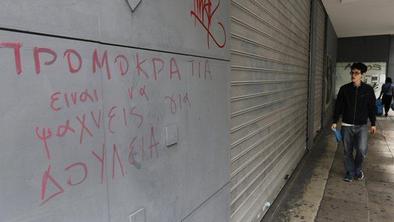 ΤΡΟΜΟΚΡΑΤΙΑ
ειναι να
ψαχνεις για
ΔΟΥΛΕΙΑ